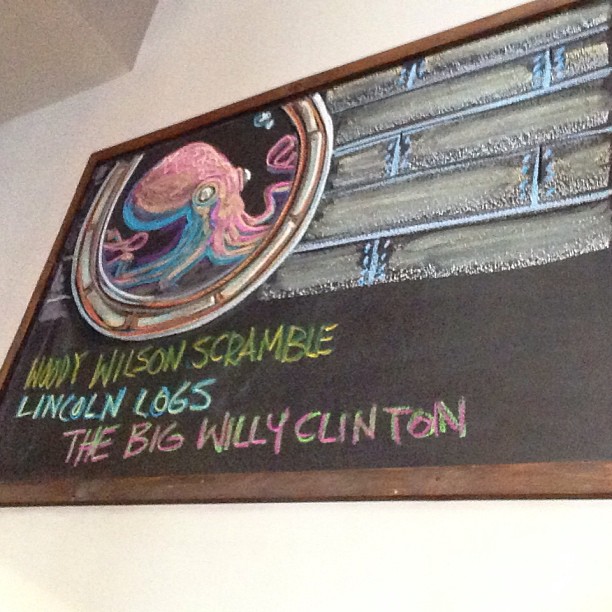 WOODY WILSON SCRAMBLE
LINCOLN LOGS
THE BIG WILLY CLINTON